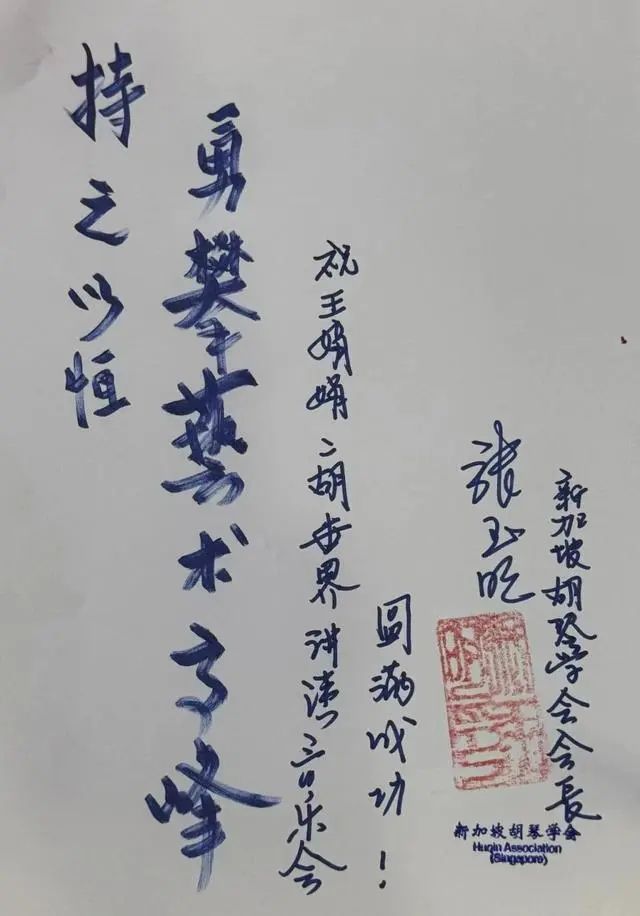 持之以恒
勇攀藝术高峰
祝王娟娟二胡世界讲演音乐会
圆满成功!
張玉明
新加坡胡琴学会会長
新加坡胡琴学会
Huqin Association
(Singapore)